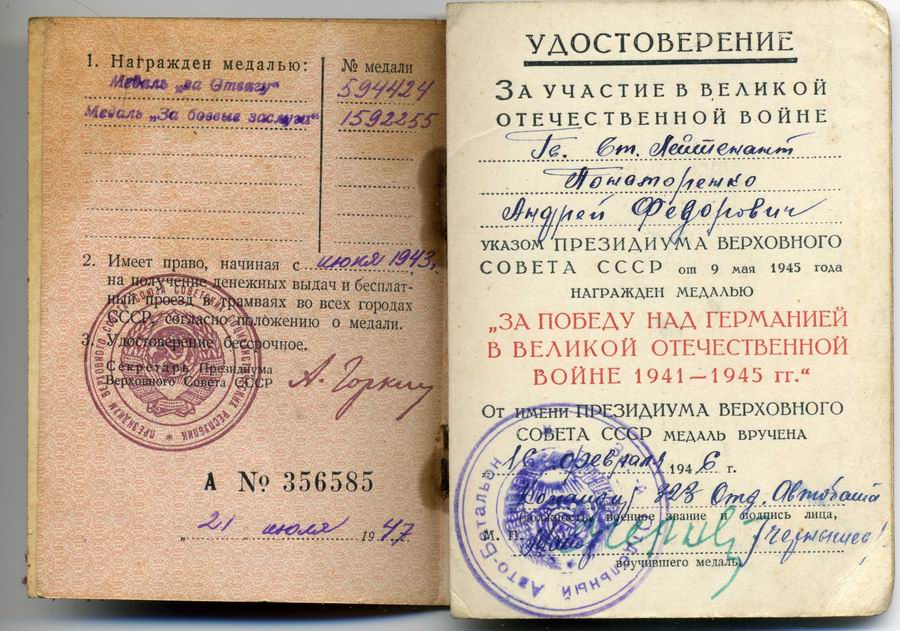 1. Награжден медалью:
№ медали
Медаль „за Отвагу“
594424
Медаль „За боевые заслуги“
1592255
2. Имеет право, начиная с июня 1943 г.
на получение денежных выдач и бесплат-
ный проезд в трамваях во всех городах
СССР, согласно положению о медали.
3. Удостоверение бессрочное.
Секретарь Президиума
Верховного Совета СССР
А. Горкин
А № 356585
„21 июля 1947
УДОСТОВЕРЕНИЕ
ЗА УЧАСТИЕ В ВЕЛИКОЙ
ОТЕЧЕСТВЕННОЙ ВОЙНЕ
Гв. Ст. Лейтенант
Понаторенко
Андрей Федорович
УКАЗОМ ПРЕЗИДИУМА ВЕРХОВНОГО
СОВЕТА СССР от 9 мая 1945 года
НАГРАЖДЕН МЕДАЛЬЮ
„ЗА ПОБЕДУ НАД ГЕРМАНИЕЙ
В ВЕЛИКОЙ ОТЕЧЕСТВЕННОЙ
ВОЙНЕ 1941—1945 гг.“
От имени ПРЕЗИДИУМА ВЕРХОВНОГО
СОВЕТА СССР МЕДАЛЬ ВРУЧЕНА
16 февраля 1946 г.
Командир 323 Отд. Автобата
(должность, военное звание и подпись лица,
М. П.
(Чернышев)
вручившего медаль)
Отдельный Авто-Батальон